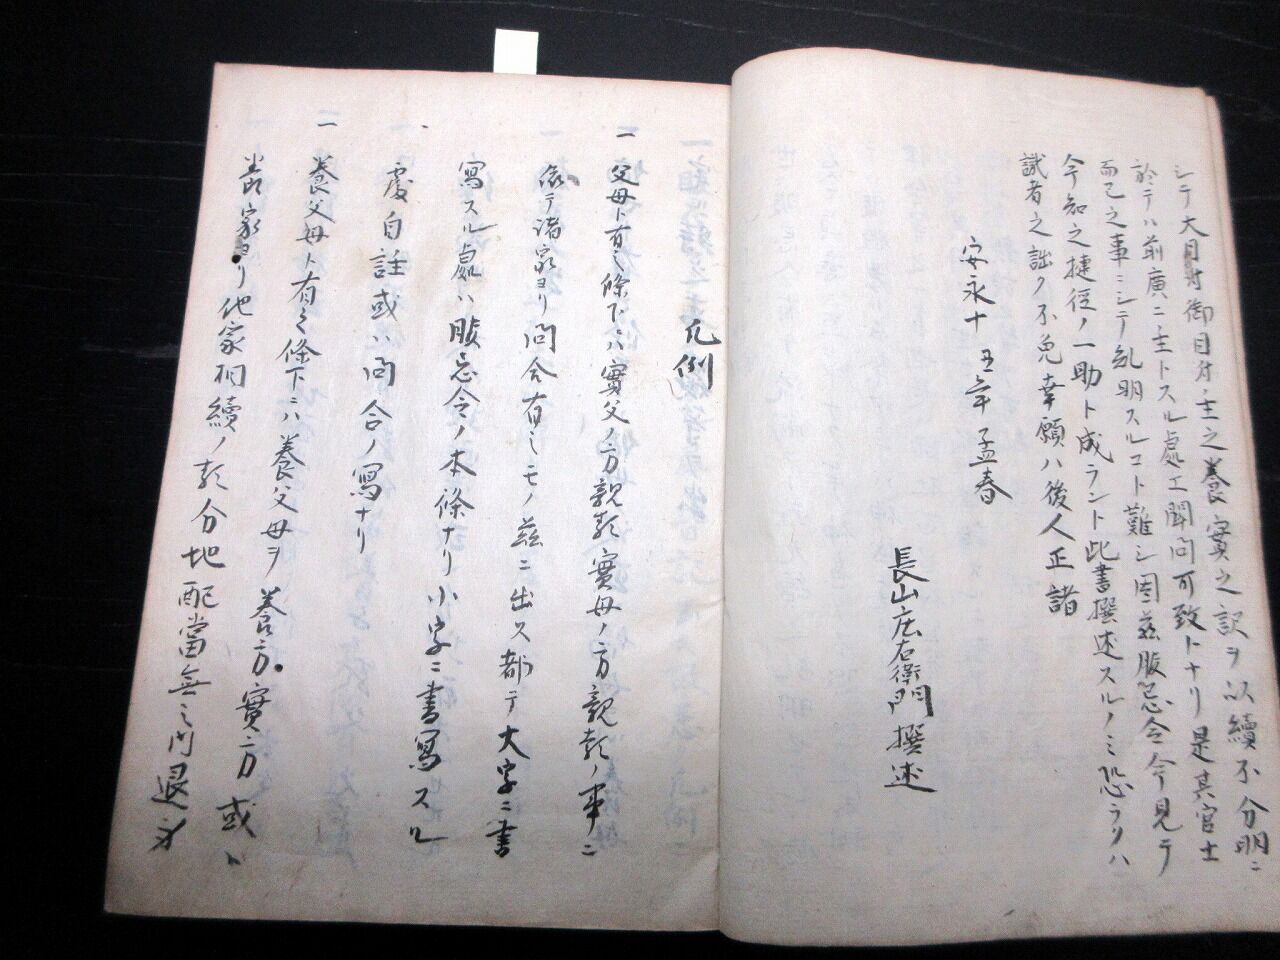 シテ大目付御目付ニ主之養實之訳ヲ以續不分明ニ
於テハ前廣ニ主トスル處エ聞問可致トナリ是其官士
而已之事ニシテ乱明スルコト難シ因茲服忌令今見テ
今知之捷径ノ一助ト成ラント此書撰述スルノミ恐ラクハ
識者之詘ク不免幸願ハ後人正諸
安永十丑年孟春
長山庄右衛門撰述
凡例
一 父母ト有之條下ニハ實父ノ方親類實母ノ方親類ノ事ニ
依テ諸家ヨリ問合有之モノ茲ニ出ス都テ大字ニ書
寫スル處ハ服忌令ノ本條ナリ小字ニ書寫スル
處自註或ハ問合ノ寫ナリ
一 養父母ト有之條下ニハ養父母ヲ養方實方或ハ
養家ヨリ他家相續ノ類分地配當無之内退身